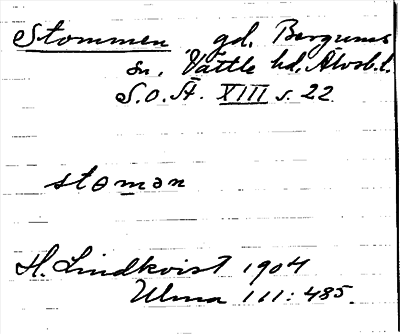 Stommen gd. Bergums
sn. Vättle hd. Älvsb.l.
S.O.Ä. XIII s. 22.
stomən
H. Lindkvist 1904
Ulma 111:485.